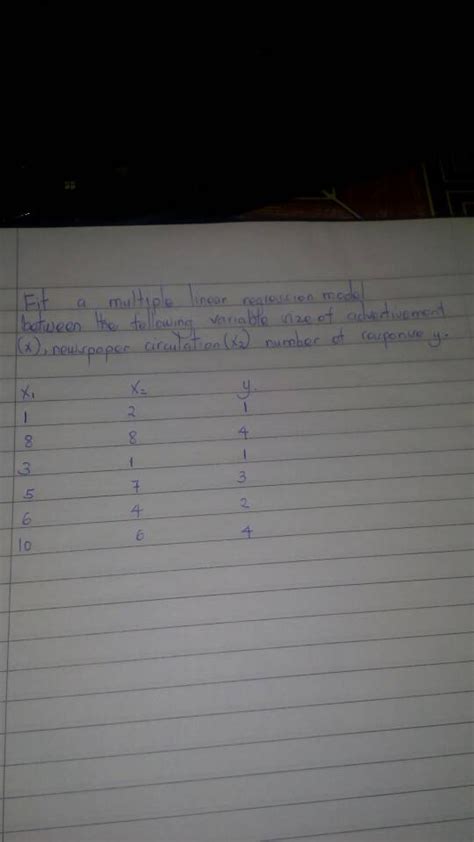 Fit a multiple linear regression model
between the following variable size of advertivement
(x), newspaper circulation (x₂) number of response y.
x₁ x₂ y.
1 2 1
8 8 4
3 1 1
5 7 3
6 4 2
10 6 4